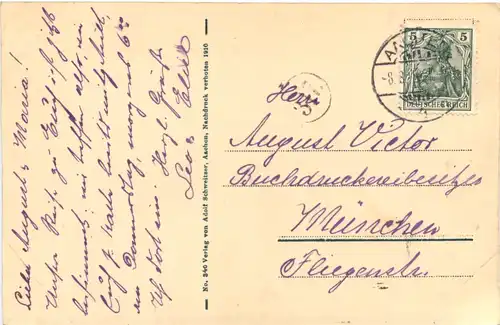 Lieber August u. Maria!
Unsere Reise zu Euch ist jetzt
bestimmt, wir treffen also, wie
Euch ja bereits mitgeteilt,
am Donnerstag morgens 6
dort ein. Herzl. Grüße
Leo u.
No. 340 Verlag von Adolf Schweitzer, Aachen, Nachdruck verboten 1910
5 5
DEUTSCHES REICH
Herrn
August Victor
Buchdruckereibesitzer
München
Fliegenstr.